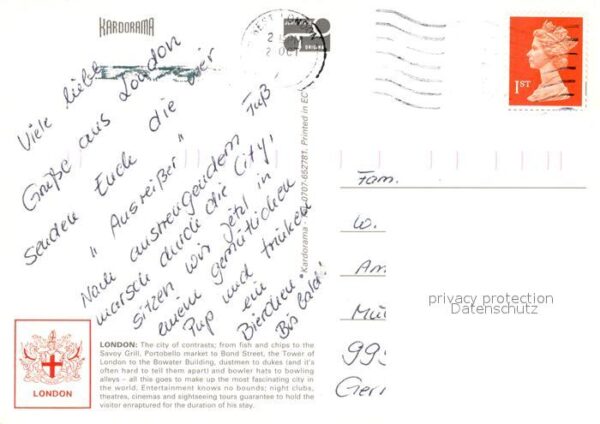 KARDORAMA
Viele liebe
Grüße aus London
senden Euch die vier
"Ausreißer"
Nach anstrengendem Fuß-
marsch durch die City,
sitzen wir jetzt in
einem gemütlichen
Pup und trinken
ein Bierchen.
Bis bald!
Kardorama 0707-652781. Printed in EC
1ST
Fam.
W.
Am
Mü
privacy protection
Datenschutz
99
Ger
LONDON
LONDON: The city of contrasts; from fish and chips to the
Savoy Grill, Portobello market to Bond Street, the Tower of
London to the Bowater Building, dustmen to dukes (and it's
often hard to tell them apart) and bowler hats to bowling
alleys – all this goes to make up the most fascinating city in
the world. Entertainment knows no bounds; night clubs,
theatres, cinemas and sightseeing tours guarantee to hold the
visitor enraptured for the duration of his stay.